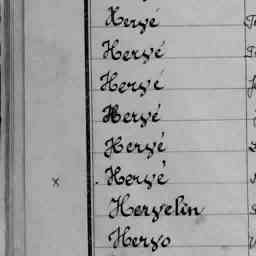 Hervé
Hervé
Hervé
Hervé
Hervé
x Hervé
Hervelin
Hervo